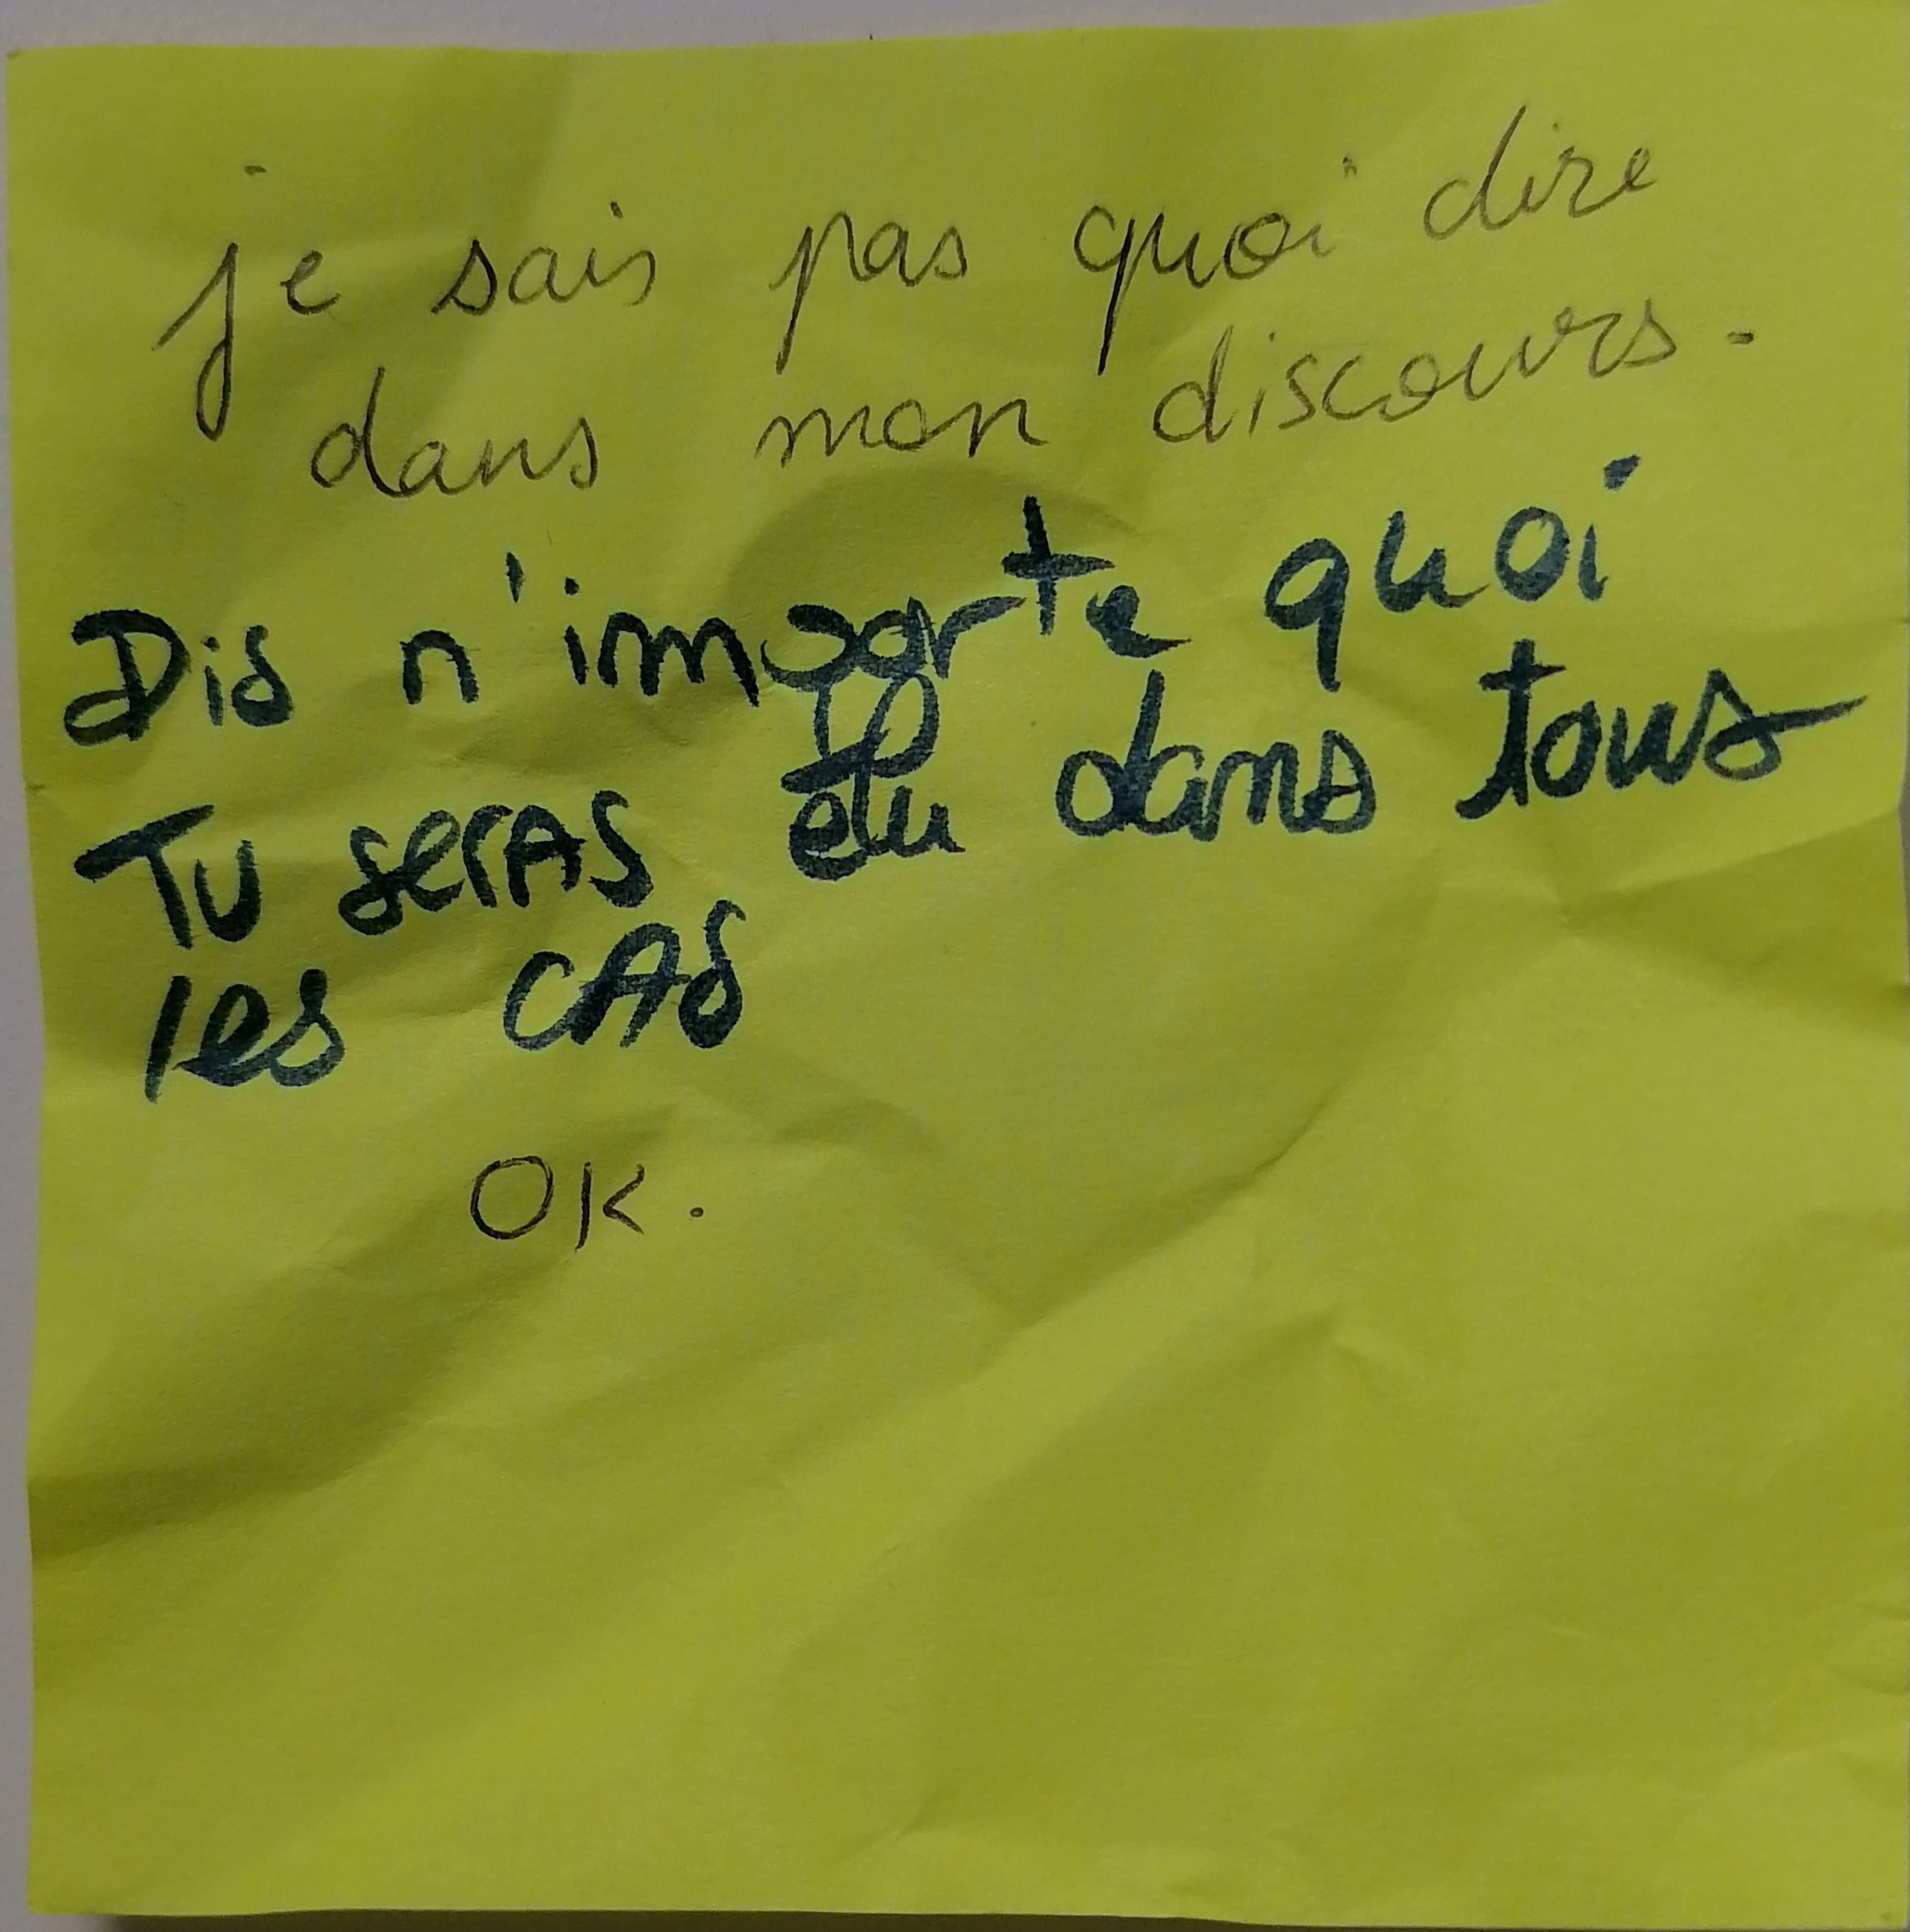 je sais pas quoi dire
dans mon discours.
Dis n'importe quoi
Tu seras élu dans tous
les cas
OK.